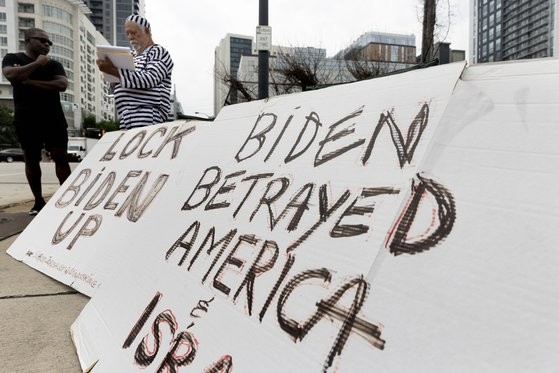 LOCK
BiDEN
UP
BiDEN
BETRAYED
AMERiCA
&
iSRA